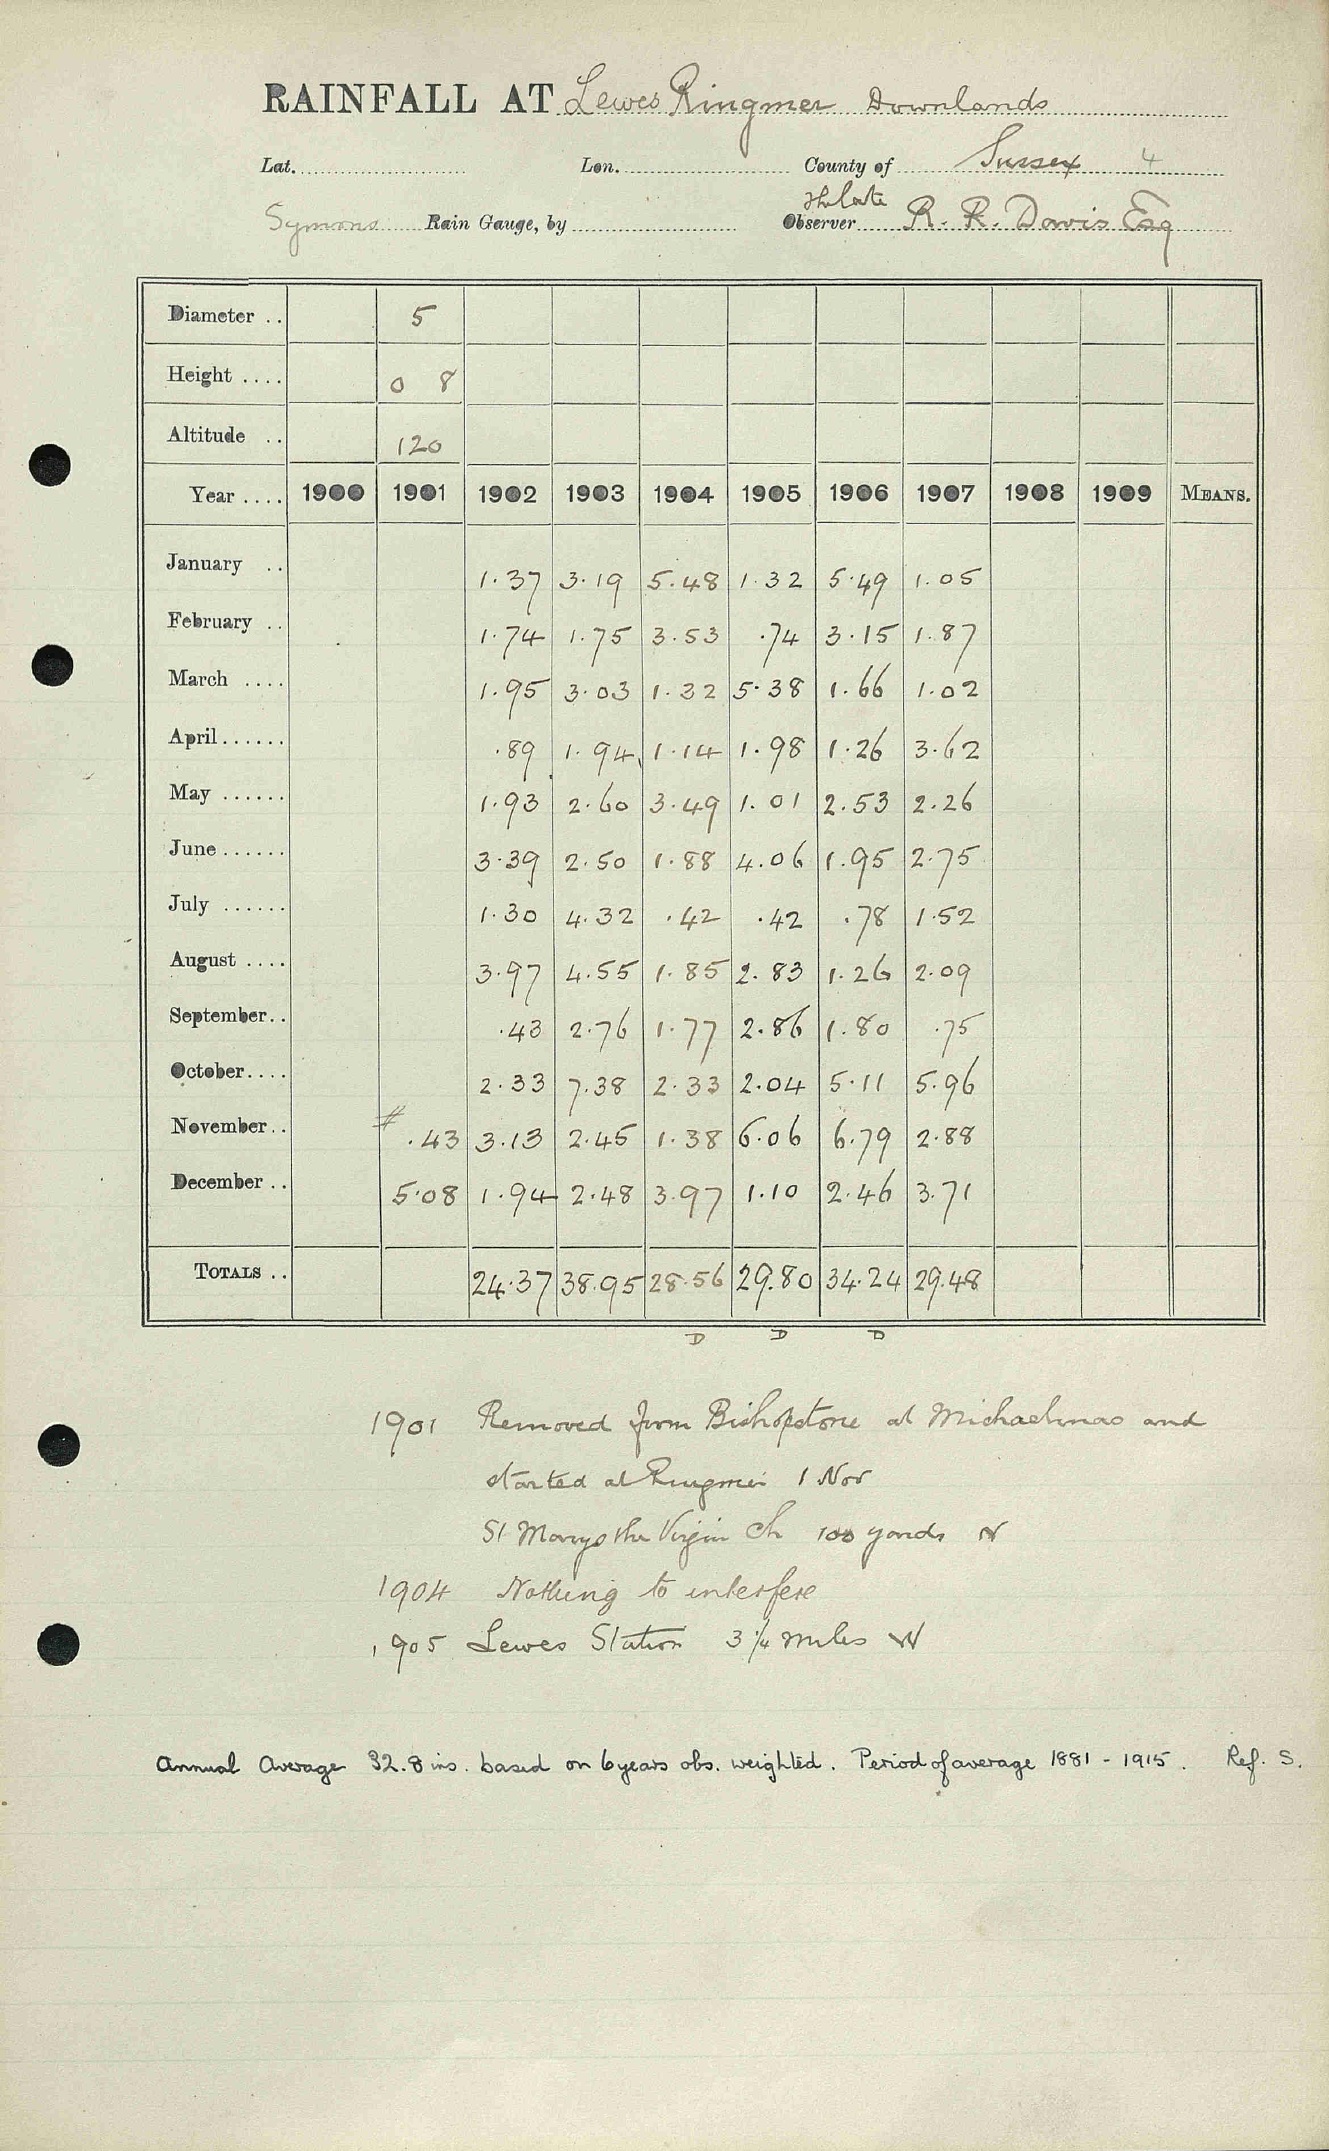 RAINFALL AT Lewes Ringmer Downlands
Lat. Lon. County of Sussex 4
Symons Rain Gauge, by the late Observer R. R. Davis Esq
Diameter .. 5
Height .... 0 8
Altitude .. 120
Year .... 1900 1901 1902 1903 1904 1905 1906 1907 1908 1909 MEANS.
January .. 1.37 3.19 5.48 1.32 5.49 1.05
February .. 1.74 1.75 3.53 .74 3.15 1.87
March .... 1.95 3.03 1.32 5.38 1.66 1.02
April...... .89 1.94 1.14 1.98 1.26 3.62
May ...... 1.93 2.60 3.49 1.01 2.53 2.26
June...... 3.39 2.50 1.88 4.06 1.95 2.75
July ...... 1.30 4.32 .42 .42 .78 1.52
August .... 3.97 4.55 1.85 2.83 1.26 2.09
September.. .43 2.76 1.77 2.86 1.80 .75
October.... 2.33 7.38 2.33 2.04 5.11 5.96
November.. # .43 3.13 2.45 1.38 6.06 6.79 2.88
December .. 5.08 1.94 2.48 3.97 1.10 2.46 3.71
TOTALS .. 24.37 38.95 28.56 29.80 34.24 29.48
D D D
1901 Removed from Bishopstone at Michaelmas and
started at Ringmer 1 Nov
St Marys the Virgin Ch 100 yards N
1904 Nothing to interfere
1905 Lewes Station 3 1/4 miles W
Annual Average 32.8 ins. based on 6 years obs. weighted. Period of average 1881 - 1915. Ref. S.